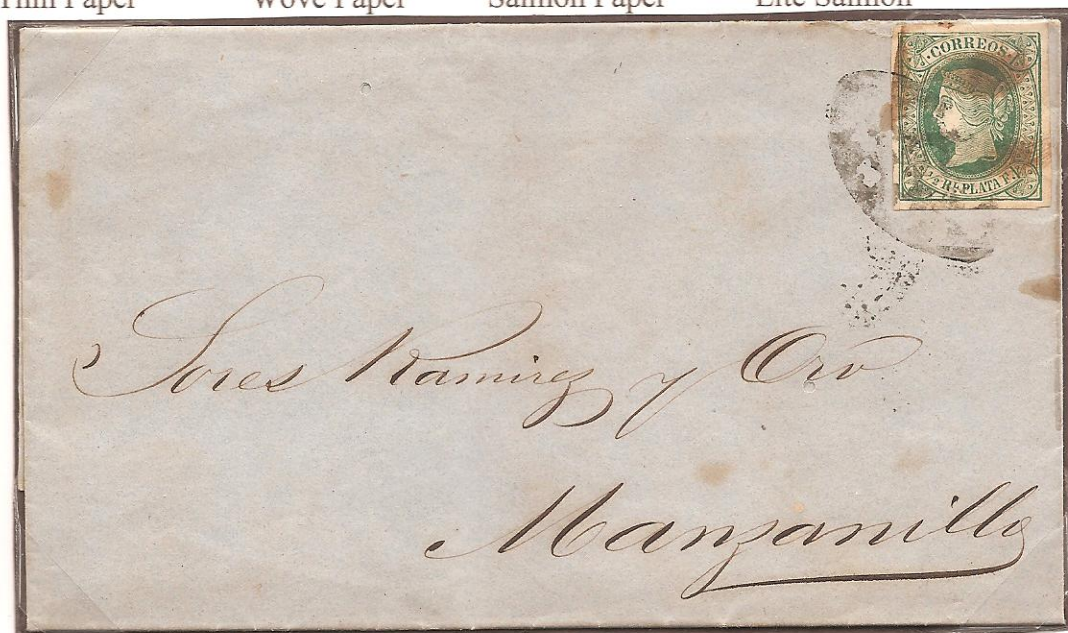 Thin Paper Wove Paper Salmon Paper Lite Salmon
CORREOS
RL PLATA F.
Sores Ramirez y Oro
Manzanillo